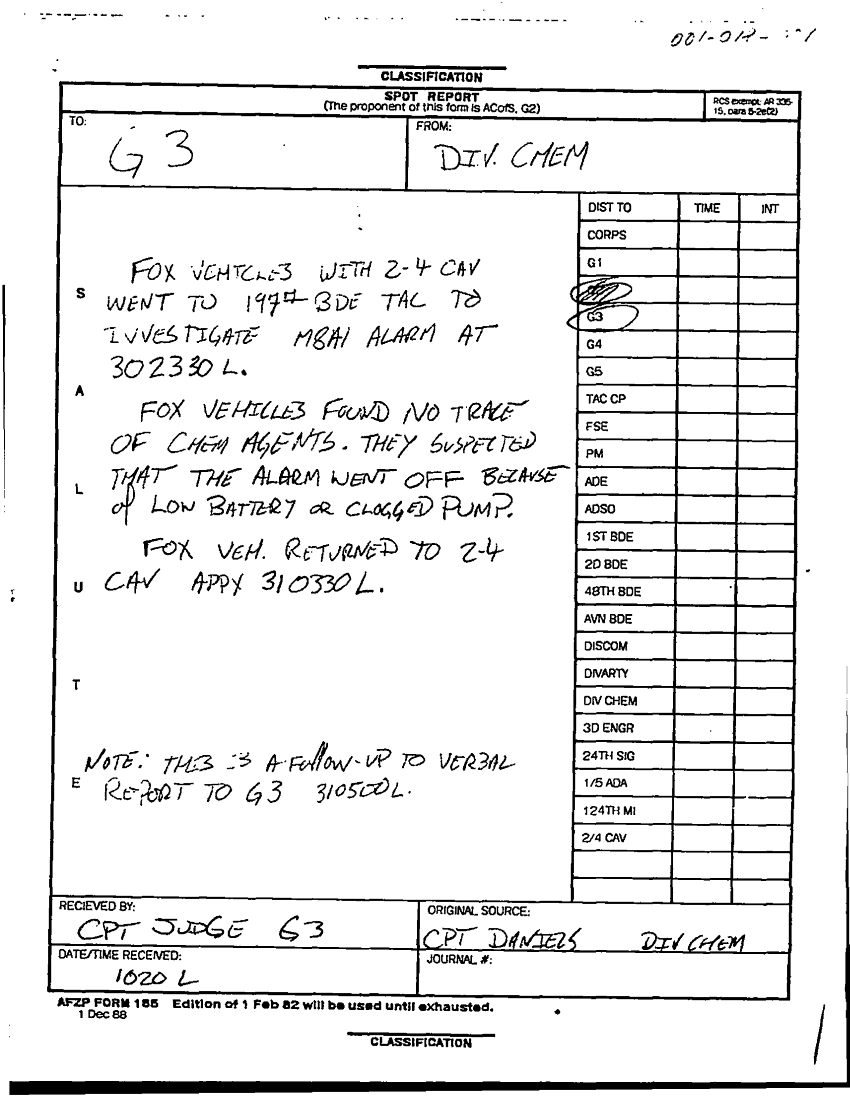 001-012-
CLASSIFICATION
SPOT REPORT
(The proponent of this form is ACofS, G2)
RCS exempt: AR 335-
15, para 5-2e(2)
TO:
G3
FROM:
DIV. CHEM
DIST TO TIME INT
CORPS
G1
G3
G4
G5
TAC CP
FSE
PM
ADE
ADSO
1ST BDE
2D BDE
48TH BDE
AVN BDE
DISCOM
DIVARTY
DIV CHEM
3D ENGR
24TH SIG
1/5 ADA
124TH MI
2/4 CAV
S
A
L
U
T
E
FOX VEHICLES WITH 2-4 CAV
WENT TO 197TH BDE TAC TO
INVESTIGATE M8A1 ALARM AT
302330 L.
FOX VEHICLES FOUND NO TRACE
OF CHEM AGENTS. THEY SUSPECTED
THAT THE ALARM WENT OFF BECAUSE
of LOW BATTERY OR CLOGGED PUMP.
FOX VEH. RETURNED TO 2-4
CAV APPX 310330 L.
NOTE: THIS IS A FOllOW-UP TO VERBAL
REPORT TO G3 310500L.
RECIEVED BY:
CPT JUDGE G3
ORIGINAL SOURCE:
CPT DANIELS DIV CHEM
DATE/TIME RECEIVED:
1020 L
JOURNAL #:
AFZP FORM 165 Edition of 1 Feb 82 will be used until exhausted.
1 Dec 88
CLASSIFICATION